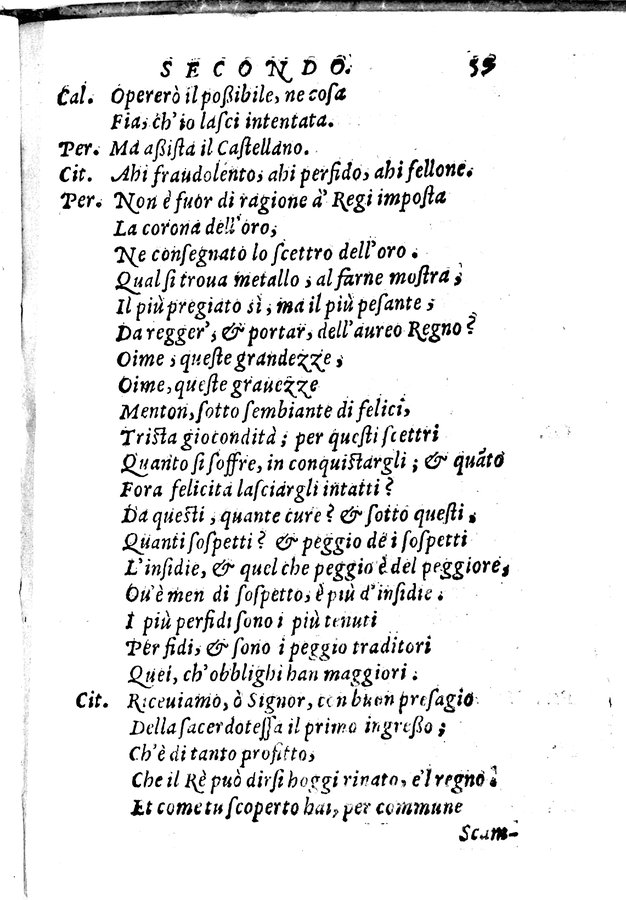 SECONDO. 59
Cal. Opererò il poßibile, ne cosa
Fia, ch'io lasci intentata.
Per. Ma aßista il Castellano.
Cit. Ahi fraudolento, ahi perfido, ahi fellone.
Per. Non è fuor di ragione à' Regi imposta
La corona dell'oro,
Ne consegnato lo scettro dell'oro.
Qual si troua metallo, al farne mostra,
Il più pregiato sì, ma il più pesante,
Da regger', & portar, dell'aureo Regno?
Oime, queste grandezze,
Oime, queste grauezze
Menton, sotto sembiante di felici,
Trista giocondità; per questi scettri
Quanto si soffre, in conquistargli; & quãto
Fora felicità lasciargli intatti?
Da questi, quante cure? & sotto questi,
Quanti sospetti? & peggio de i sospetti
L'insidie, & quel che peggio è del peggiore,
Ou'è men di sospetto, è più d'insidie.
I più perfidi sono i più tenuti
Per fidi, & sono i peggio traditori
Quei, ch'obblighi han maggiori.
Cit. Riceuiamo, ò Signor, con buon presagio
Della sacerdotessa il primo ingreßo;
Ch'è di tanto profitto,
Che il Rè può dirsi hoggi rinato, e'l regno.
Et come tu scoperto hai, per commune
Scam-